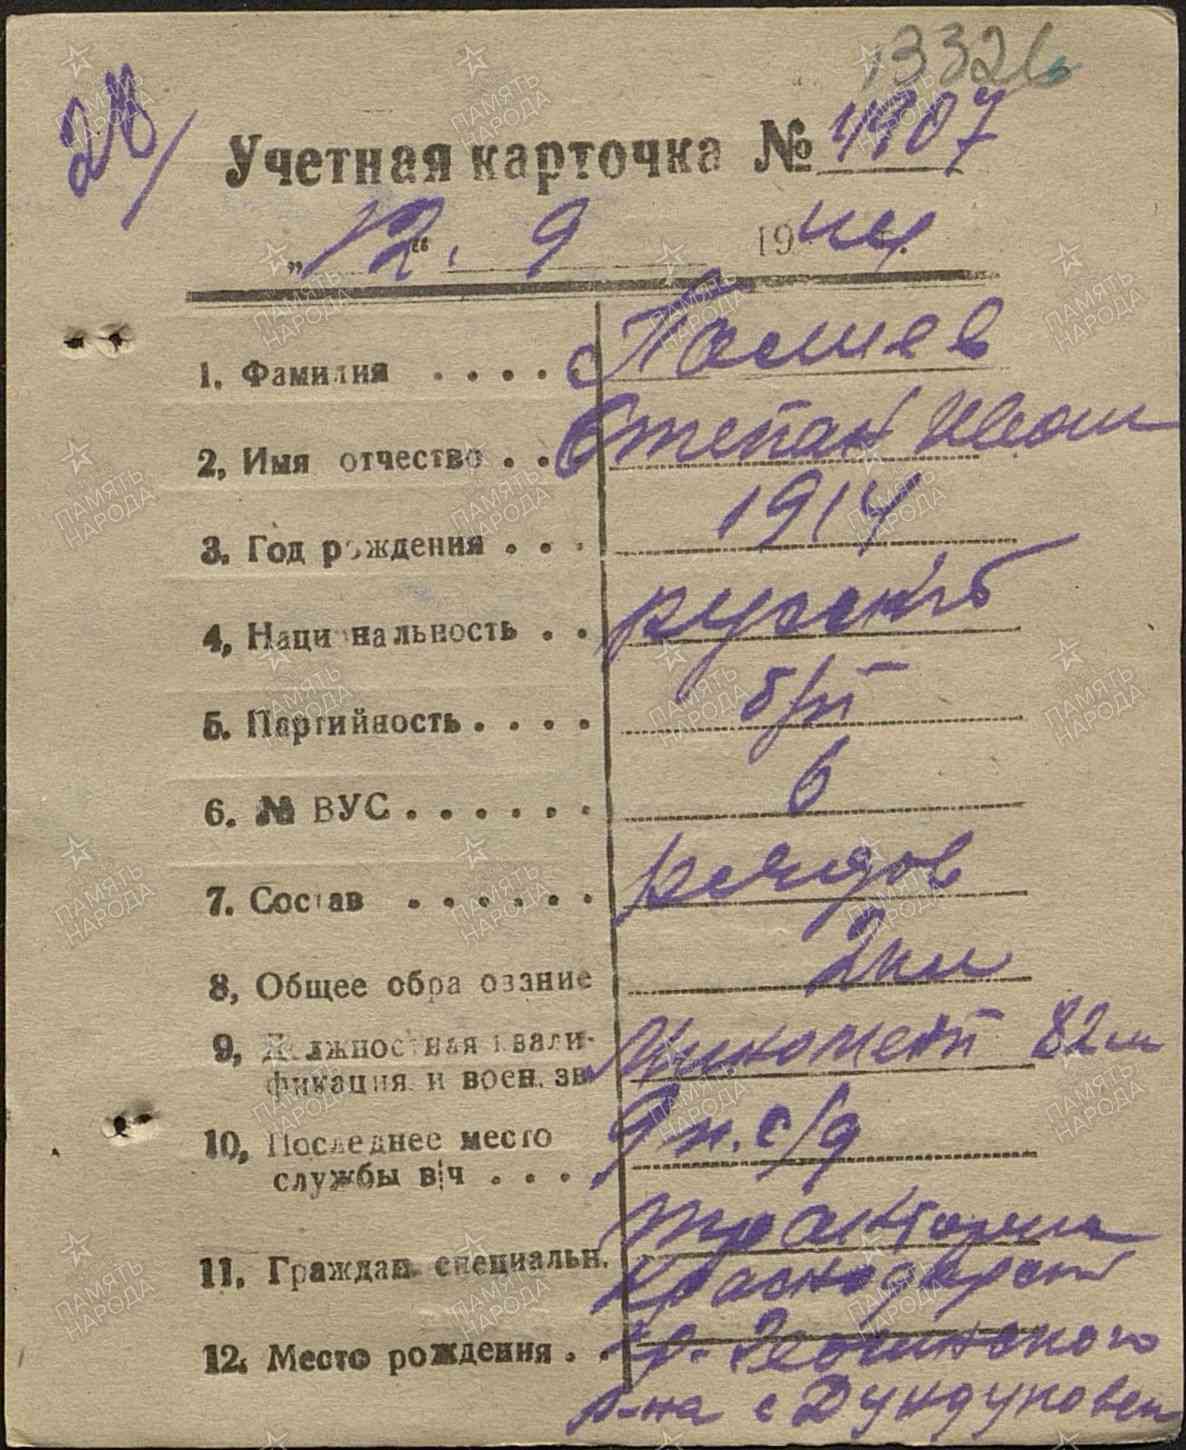 13326
28/
Учетная карточка № 4907
„12“. 9 1944 г.
1. Фамилия . . . .
2, Имя отчество . . Степан Иван
3. Год рождения . . . 1914
4, Национальность . . русский
5. Партийность . . . . б/п
6. № ВУС . . . . . . 6
7. Состав . . . . . . рядов
8, Общее образование 2 кл
9, Должностная квали- Миномет 82 мм
фикация и воен. зв.
10, Последнее место 9 п. с/д
службы в/ч . . . .
11. Граждан. специальн. тракторист
Краснодарский
12. Место рождения . . кр.
р-на с
ПАМЯТЬ НАРОДА